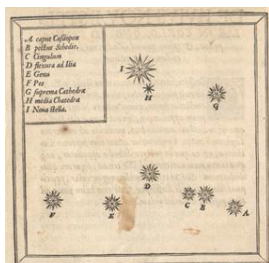 A caput Cassiopeæ
B pectus Schedir.
C Cingulum
D flexura ad Ilia
E Genu
F Pes
G suprema Cathedræ
H media Chatedræ
I Noua stella.
I
H
G
D
C B
F E A